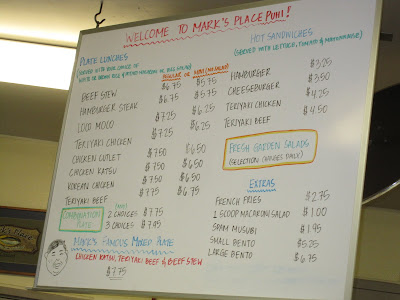 WELCOME TO MARK'S PLACE PUHI!
PLATE LUNCHES
(SERVED WITH YOUR CHOICE OF
WHITE OR BROWN RICE & POTATO MACARONI OR
REGULAR OR MINI
BEEF STEW $6.75 $5.75
HAMBURGER STEAK $6.75 $5.75
LOCO MOCO $7.25 $6.25
TERIYAKI CHICKEN $7.25 $6.25
CHICKEN CUTLET $7.50 $6.50
CHICKEN KATSU $7.50 $6.50
KOREAN CHICKEN $7.50 $6.50
TERIYAKI BEEF $7.75 $6.75
COMBINATION PLATE
2 CHOICES $7.75
3 CHOICES
MARK'S FAMOUS MIXED PLATE
CHICKEN KATSU, TERIYAKI BEEF & BEEF STEW
$7.75
HOT SANDWICHES
(SERVED WITH LETTUCE, TOMATO & MAYONNAISE)
HAMBURGER $3.25
CHEESEBURGER $3.50
TERIYAKI CHICKEN $4.25
TERIYAKI BEEF $4.50
FRESH GARDEN SALADS
(SELECTION CHANGES DAILY)
EXTRAS
FRENCH FRIES $2.75
1 SCOOP MACARONI SALAD $1.00
SPAM MUSUBI $1.95
SMALL BENTO $5.25
LARGE BENTO $6.75